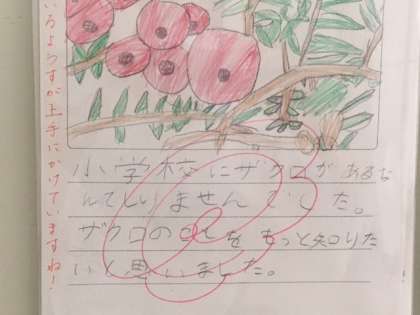 小学校にザクロがあるな
んてしりませんでした。
ザクロのことをもっと知りた
いと思いました。
いるようすが上手にかけていますね！